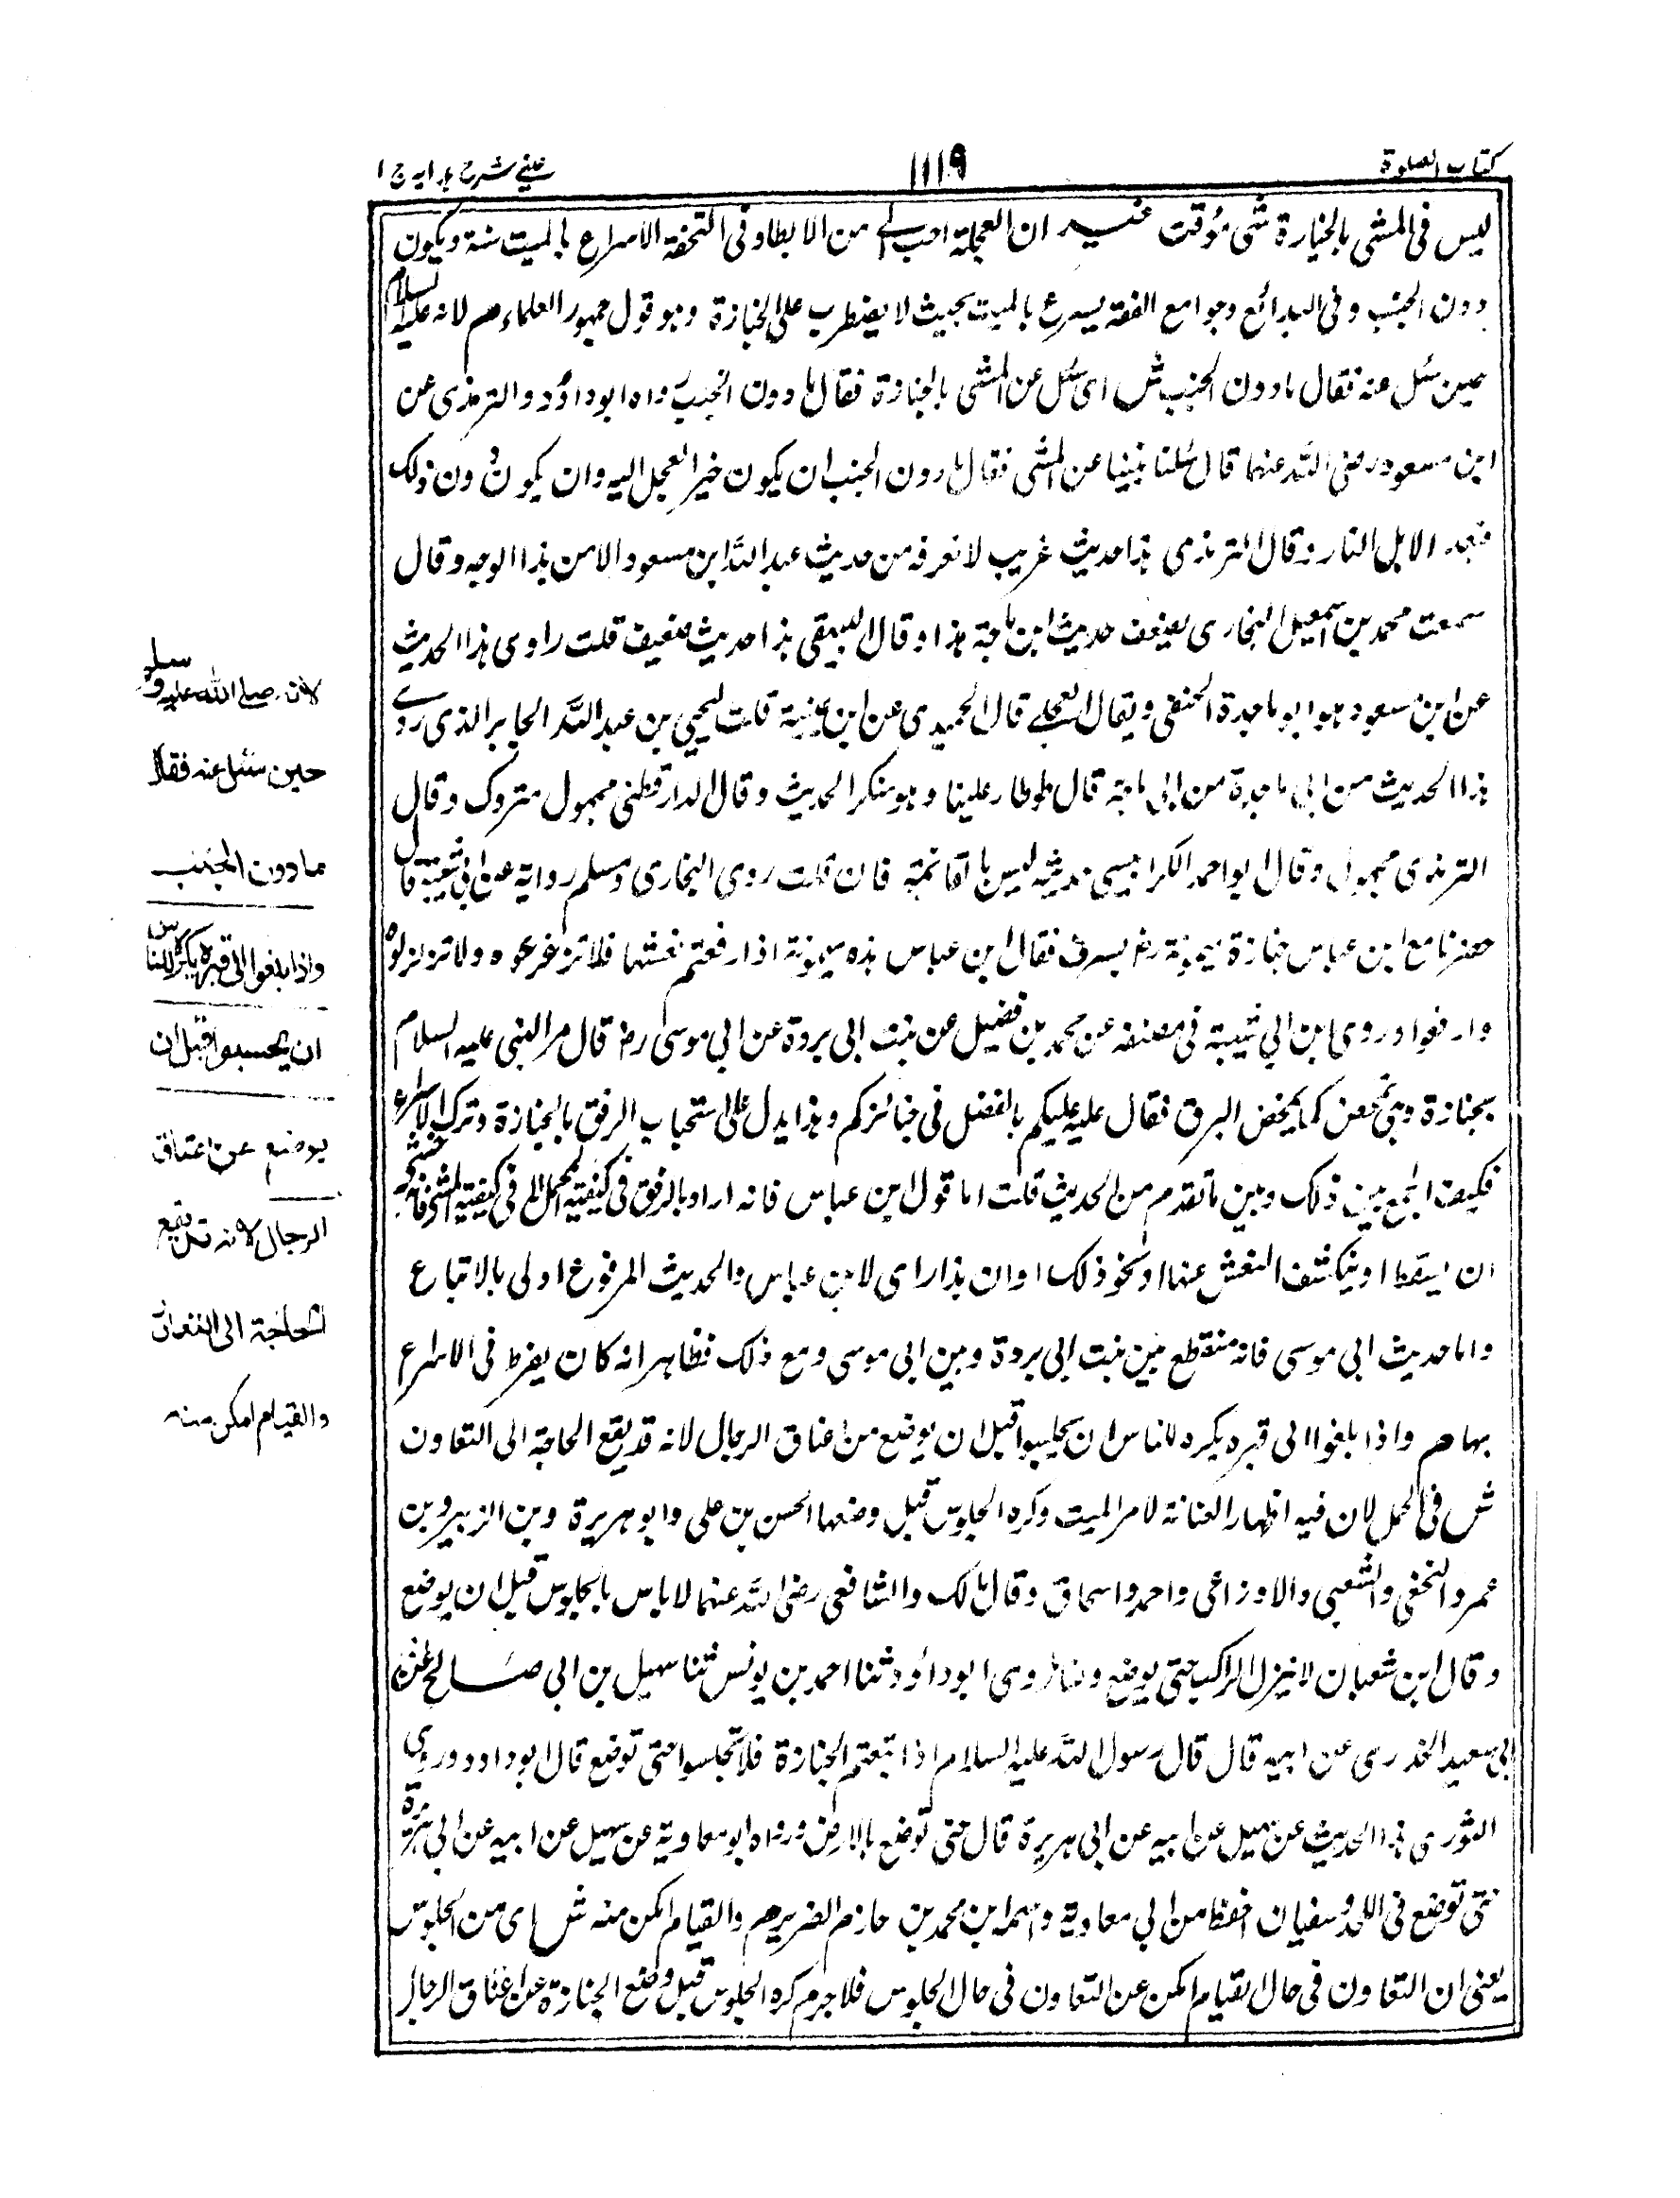 كتاب الصلوة
١١١٩
عينى شرح هدايه ج ١
ليس فى المشى بالجنازة شئ مؤقت غير ان العجلة احب الى من الابطاء وفى التحفة الاسراع بالميت سنة ويكون
دون الخبب وفى البدائع وجوامع الفقه يسرع بالميت بحيث لا يضطرب على الجنازة وهو قول جمهور العلماء م لانه عليه السلام
حين سئل عنه فقال ما دون الخبب ش اى سئل عن المشى بالجنازة فقال ما دون الخبب رواه ابو داؤد والترمذى عن
ابن مسعود رضى الله عنهما قال سئلنا نبينا عن المشى فقال ما دون الخبب ان يكون خيرا تعجل اليه وان يكون دون ذلك
فبعد الاهل النار وقال الترمذى هذا حديث غريب لا نعرفه من حديث عبد الله ابن مسعود الا من هذا الوجه وقال
سمعت محمد بن اسمعيل البخارى يضعف حديث ابن ماجة هذا وقال البيهقى هذا حديث ضعيف قلت راوى هذا الحديث
عن ابن مسعود هو ابو ماجدة الحنفى ويقال العجلى قال الحميدى عن ابن عيينة قلت ليحيى بن عبد الله الجابر الذى روى
هذا الحديث من ابى ماجدة من ابى ماجة قال طوطار علينا وهو منكر الحديث وقال الدارقطنى مجهول متروك وقال
الترمذى مجهول وقال ابو احمد الكرابيسى حديثه ليس بالقائمة فان قلت روى البخارى ومسلم رواية عن ابى شيبة قال
حضرنا مع ابن عباس جنازة ميمونة رض بسرف فقال ابن عباس هذه ميمونة اذا رفعتم نعشها فلا تزعزعوه ولا تزلزلوه
وارفعوا وروى ابن ابى شيبة فى مصنفه عن محمد بن فضيل عن بنت ابى بردة عن ابى موسى رض قال مر النبى عليه السلام
بجنازة وهى تمخض كما يمخض البرق فقال عليه عليكم بالقصد فى جنائزكم وهذا يدل على استحباب الرفق بالجنازة وترك الاسراع
فكيف الجمع بين ذلك وبين ما تقدم من الحديث قلت اما قول ابن عباس فانه اراد بالرفق فى كيفية الحمل لا فى كيفية المشى فانه خشى
ان يسقط او ينكشف النعش عنها او نحو ذلك او ان هذا راى لابن عباس والحديث المرفوع اولى بالاتباع
واما حديث ابى موسى فانه منقطع بين بنت ابى بردة وبين ابى موسى ومع ذلك فظاهر انه كان يفرط فى الاسراع
بها م واذا بلغوا الى قبره يكره للناس ان يجلسوا قبل ان يوضع من اعناق الرجال لانه قد يقع الحاجة الى التعاون
ش فى الحمل لان فيه اظهار العناية لامر الميت وكره الجلوس قبل وضعها الحسن بن على وابو هريرة وبن الزبير وبن
عمر والنخعى والشعبى والاوزاعى واحمد واسحاق وقال مالك والشافعى رضى الله عنهما لا باس بالجلوس قبل ان يوضع
وقال ابن شعبان لا ينزل الراكب حتى يوضع ولنا ما روى ابو داؤد ثنا احمد بن يونس ثنا سهيل بن ابى صالح عن
ابى سعيد الخدرى عن ابيه قال قال رسول الله عليه السلام اذا تبعتم الجنازة فلا تجلسوا حتى توضع قال ابو داود وروى
الثورى هذا الحديث عن سهيل عن ابيه عن ابى هريرة قال حتى توضع بالارض ورواه ابو معاوية عن سهيل عن ابيه عن ابى هريرة
حتى توضع فى اللحد وسفيان احفظ من ابى معاوية واسمه ابن محمد بن حازم الضرير م والقيام امكن منه ش اى من الجلوس
يعنى ان التعاون فى حال القيام امكن عن التعاون فى حال الجلوس فلا جرم كره الجلوس قبل وضع الجنازة عن اعناق الرجال
لانه صلى الله عليه وسلم
حين سئل عنه فقال
ما دون الخبب
واذا بلغوا الى قبره يكره للناس
ان يجلسوا قبل ان
يوضع عن اعناق
الرجال لانه قد يقع
الحاجة الى التعاون
والقيام امكن منه